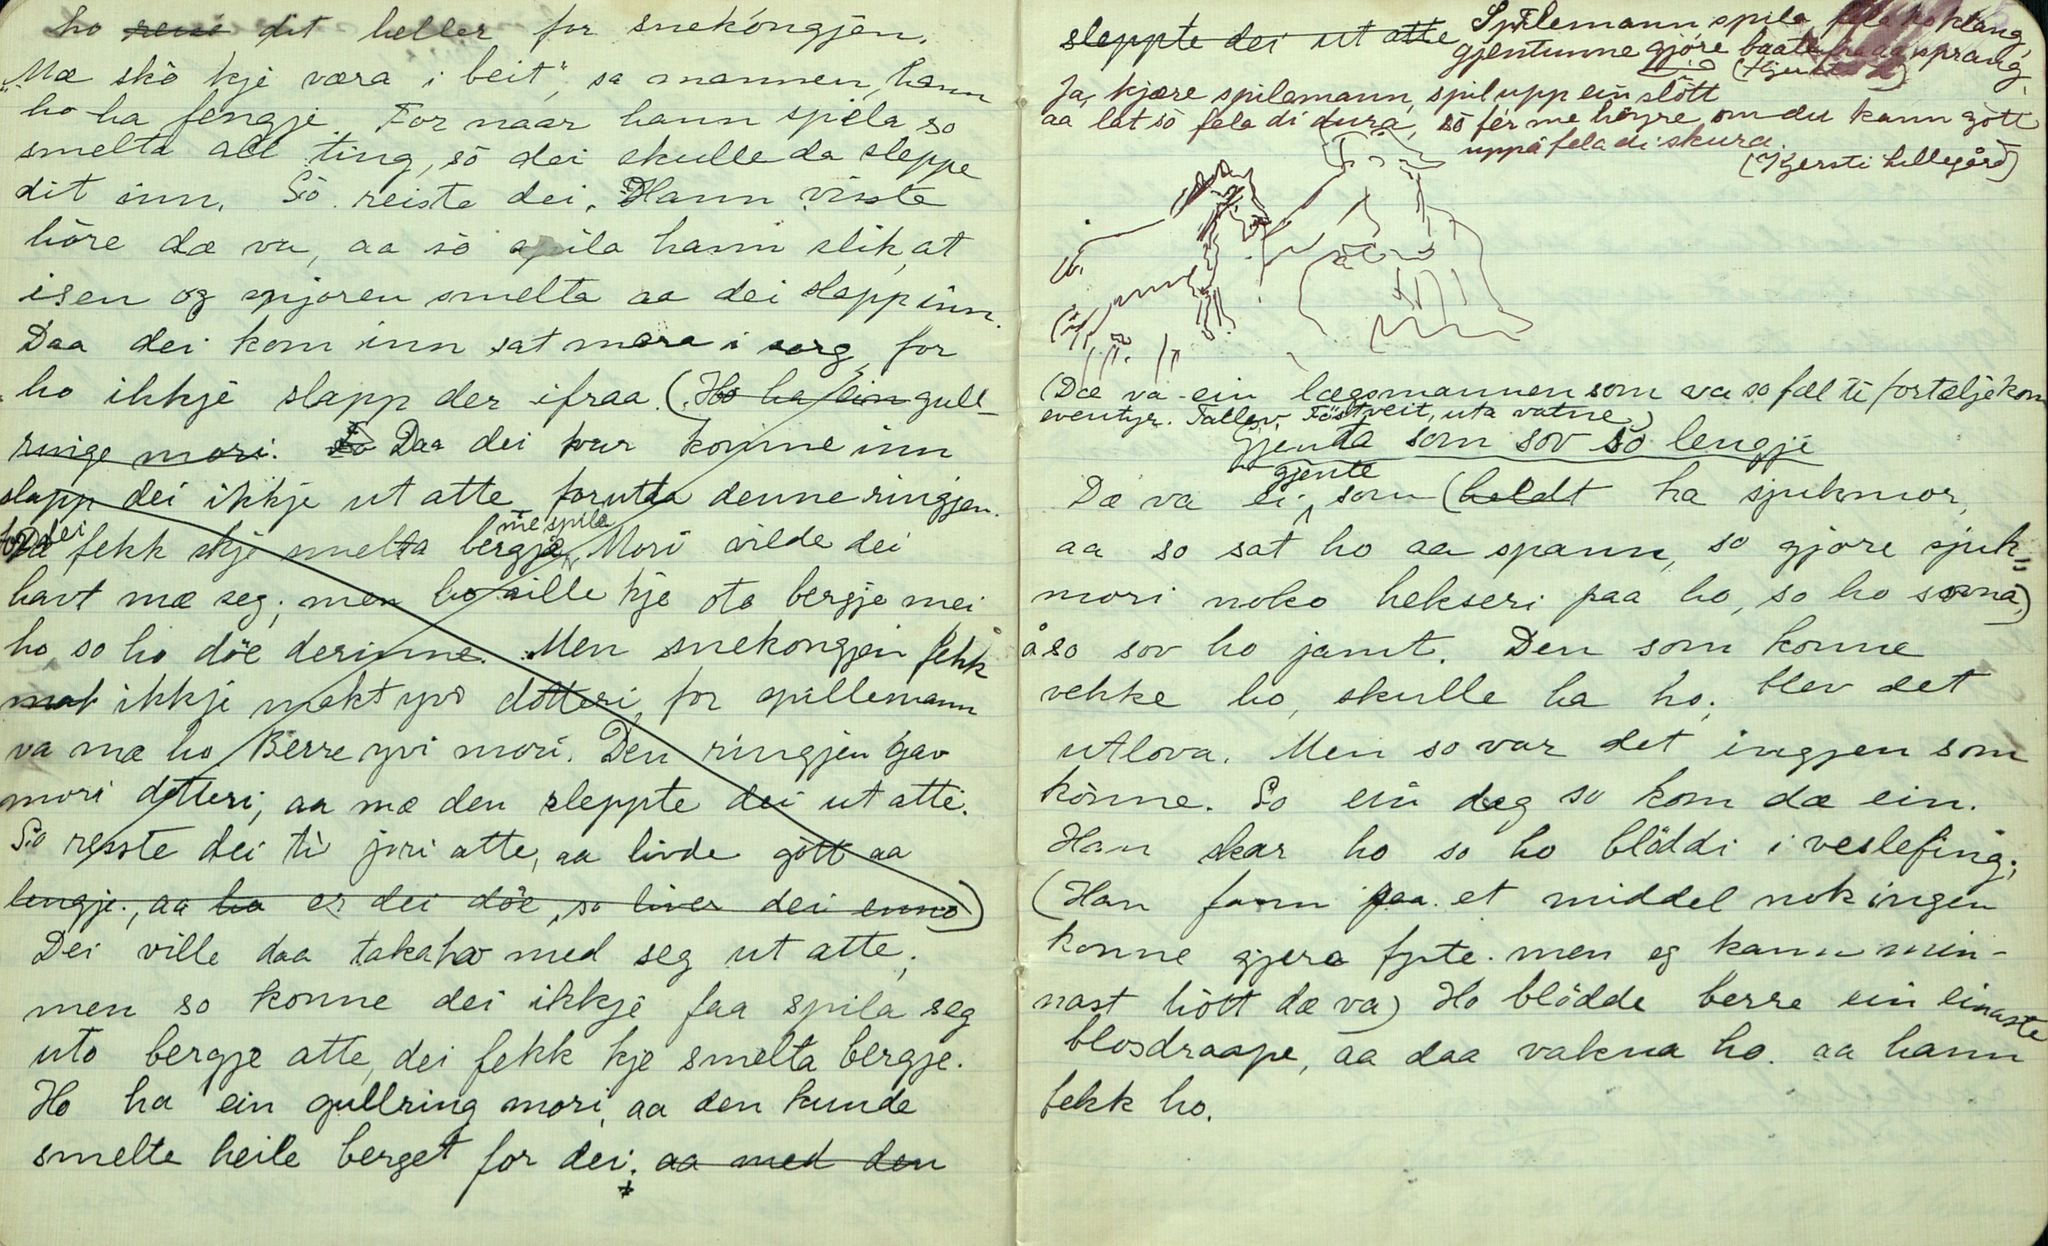 ho reiš dit heller for snekongjen.
"Mæ skô kje væra i beit", sa mannen, hann
ho ha fengje. For naar hann spila so
smelta all ting, sô dei skulle da sleppe
dit inn. Sô reiste dei. Hann visste
hôre dæ va, aa sô spila hann slik, at
isen og snjoren smelta aa dei slapp inn.
Daa dei kom inn sat mora i sorg, for
ho ikkje slapp der ifraa. (Ho ha ein gull-
ringe mori. Daa dei var komne inn
slapp dei ikkje ut atte forutta denne ringjen.
for dei fekk ikkje smelta bergje me spila. Mori vilde dei
havt mæ seg; men ho ville kje ota bergje mei
ho, so ho döe derinne. Men snekongjen fekk
ikkje makt yvo dotteri, for spillemann
va mæ ho. Berre yvi mori. Den ringjen gav
mori dotteri, aa mæ den sleppte dei ut atte.
So reiste dei ti jori atte, aa livde gôtt aa
lengje, aa ha er dei döe, so liver dei enno)
Dei ville daa taka ho med seg ut atte,
men so konne dei ikkje faa spila seg
uto bergje atte, dei fekk kje smelta bergje.
Ho ha ein gullring mori, aa den kunde
smelte heile berget for dei; aa med den
sleppte dei ut atte
Spilemann spila, fela ho klang,
gjentunne gjöre baate aa sprang.
Ja, kjære spilemann, spil upp ein slôtt
aa lat sô fela di dura, sô fér me höyre om du kann gôtt
uppå fela di skura.
(Kjersti Lillegård)
(Dæ va ein lægsmannen som va so fæl ti fortælje kom
eventyr. Tallev Föstveit, uta vatne.)
Gjenta som sov so lengji
Dæ va ei gjente som (heldt ha sjukmor,
aa so sat ho aa spann, so gjore sjuk-
mori noko hekseri paa ho, so ho sovna,)
å so sov ho jamt. Den som konne
vekke ho, skulle ha ho, blev det
utlova. Men so var det ingjen som
kônne. So ein dag so kom dæ ein.
Han skar ho so ho blöddi i veslefing;
(Han fann paa et middel nok ingen
konne gjera fyrte. men eg kann min-
nast hôtt dæ va) Ho blödde berre ein einaste
blosdraape, aa daa vakna ho. aa hann
fekk ho.